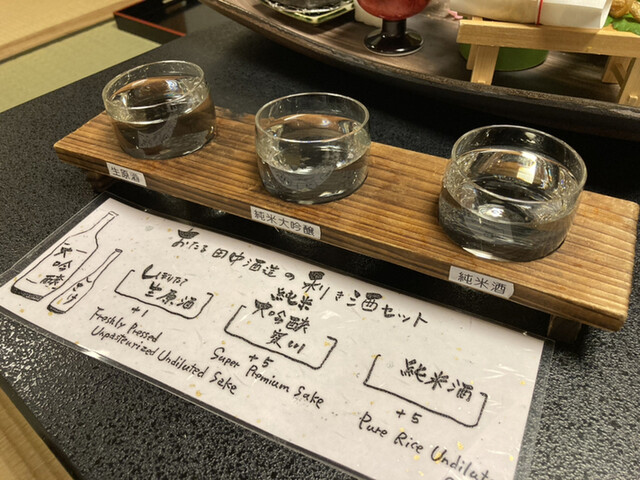 生原酒
純米大吟醸
純米酒
おたる 田中酒造の 利き酒セット
大吟醸
しぼりたて
生原酒
+1
Freshly Pressed
Unpasteurized Undiluted Sake
純米
大吟醸
+5
Super Premium Sake
純米酒
+5
Pure Rice Undilut